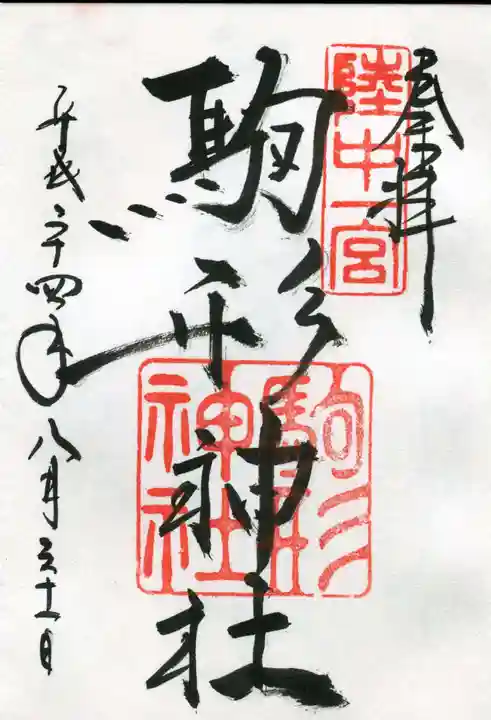 奉拝
陸中一宮
駒形神社
駒形神社
平成二十四年八月二十一日